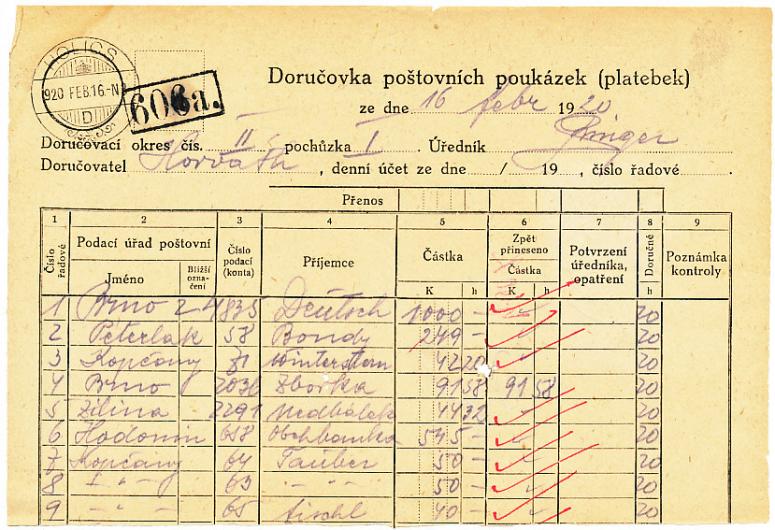 HOLICS
920 FEB.16-N
D
606a.
Doručovka poštovních poukázek (platebek)
ze dne 16 febr 1920
Doručovací okres čís. II, pochůzka I. Úředník
Doručovatel Horváth, denní účet ze dne / 19 , číslo řadové .
Přenos
1 2 3 4 5 6 7 8 9
Číslo řadové
Podací úřad poštovní
Jméno
Bližší označení
Číslo podací (konta)
Příjemce
Částka
K h
Zpět přineseno
Částka
K h
Potvrzení úředníka, opatření
Doručné
h
Poznámka kontroly
1 Brno 2 4835 Deutsch 1000 - 20
2 Peterlak 58 Bondy 249 - 20
3 Kopčany 31 Winterstern 42 20 20
4 Brno 2036 Zbořka 91 58 91 58 20
5 Žilina 2291 Nedbálek 44 32 20
6 Hodonin 658 545 - 20
7 Kopčany 64 Tauber 50 - 20
8 - " - 63 - " - 50 - 20
9 - " - 65 Fischl 40 - 20